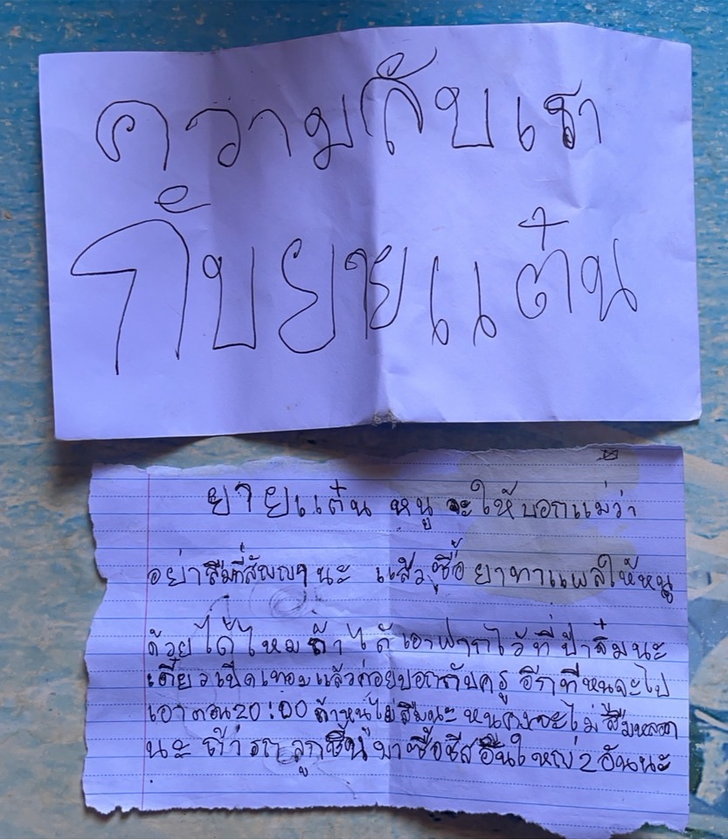 ความลับเรา
กับยายแต๋น
ยายแต๋น หนูจะให้บอกแม่ว่า
อย่าลืมที่สัญญานะ แล้วซื้อยาทาแผลให้หนู
ด้วยได้ไหมถ้าได้เอาฝากไว้ที่ป้าติ๋มนะ
เดี๋ยวเปิดเทอมแล้วค่อยบอกกับครู อีกทีหนูจะไป
เอาตอน 20:00 ถ้าหนูไม่ลืมนะ หนูคงจะไม่ลืมหลอก
นะ ถ้ารถลูกชิ้นมาซื้อชีสอันใหญ่ 2 อันนะ